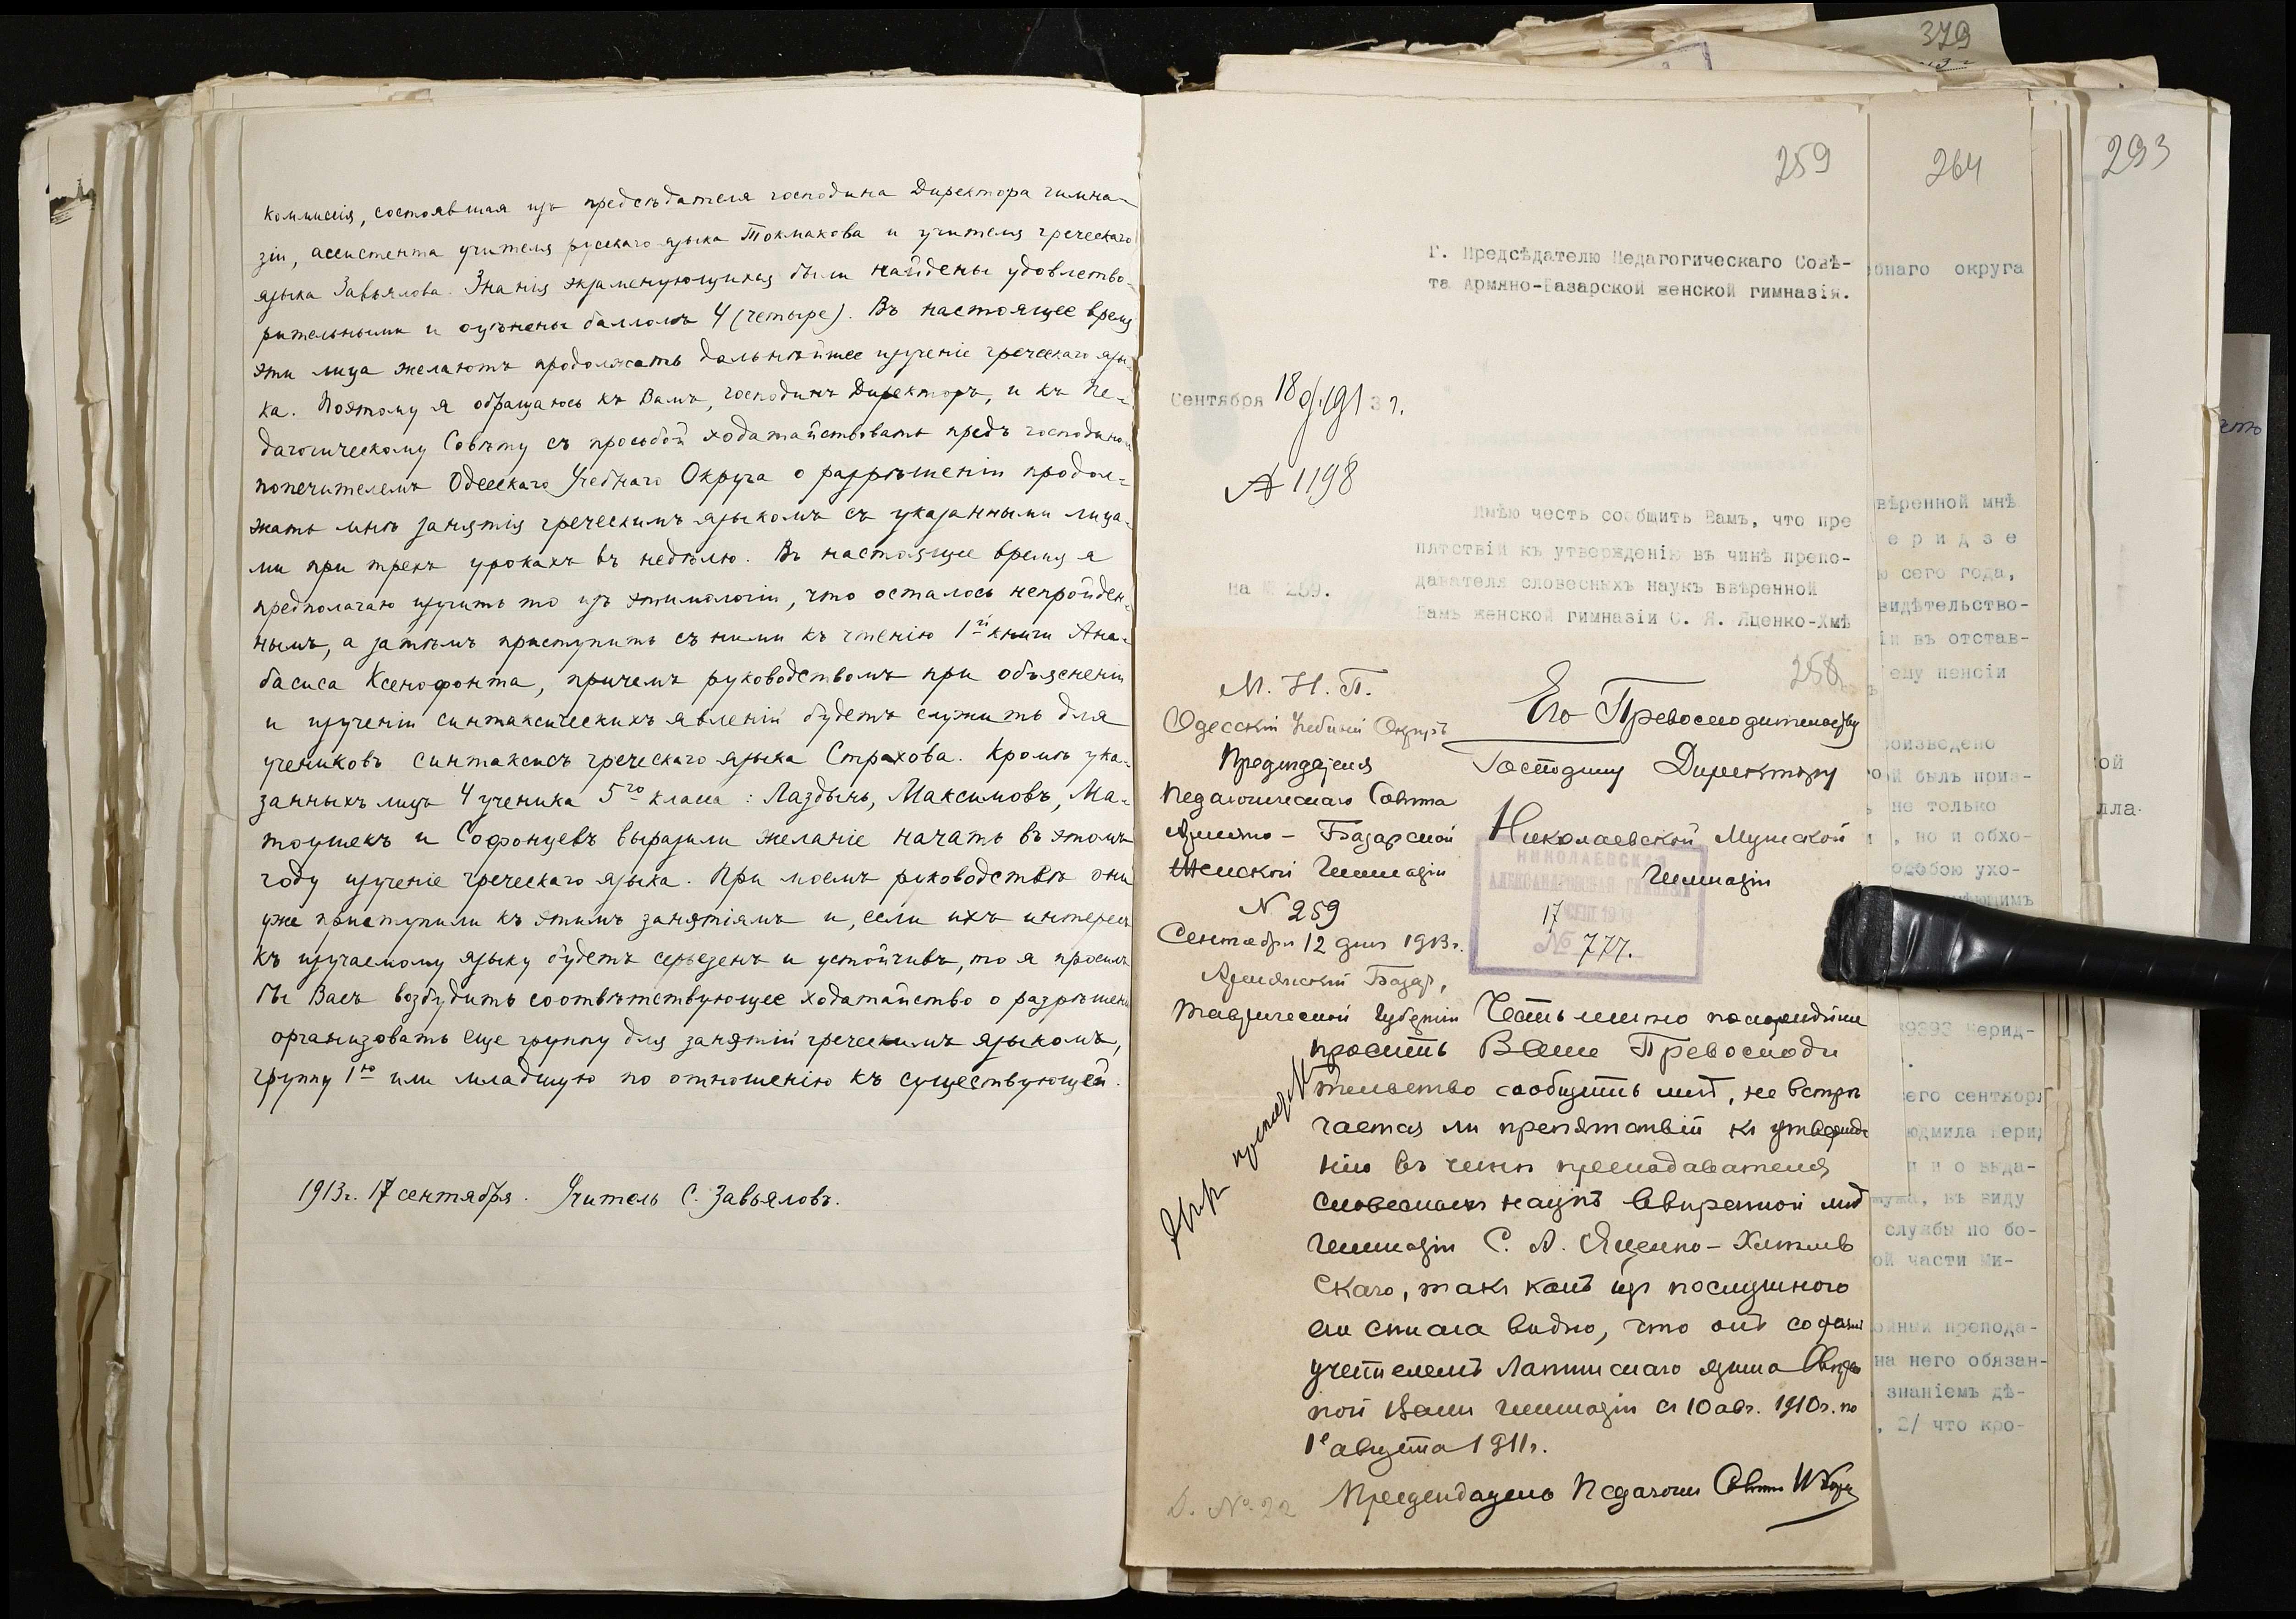 коммиссія, состоявшая изъ предсѣдателя господина Директора гимна-
зіи, ассистента учителя русскаго языка Токмакова и учителя греческаго
языка Завьялова. Знанія экзаменующихся были найдены удовлетво-
рительными и оцѣнены балломъ 4 (четыре). Въ настоящее время
эти лица желаютъ продолжать дальнѣйшее изученіе греческаго язы-
ка. Поэтому я обращаюсь къ Вамъ, господинъ Директоръ, и къ Пе-
дагогическому Совѣту съ просьбой ходатайствовать предъ господиномъ
попечителемъ Одесскаго Учебнаго Округа о разрѣшеніи продол-
жать мнѣ занятія греческимъ языкомъ съ указанными лица-
ми при трехъ урокахъ въ недѣлю. Въ настоящее время я
предполагаю изучить то изъ этимологіи, что осталось непройден-
нымъ, а затѣмъ приступить съ ними къ чтенію 1-й книги Ана-
басиса Ксенофонта, причемъ руководствомъ при объясненіи
и изученіи синтаксическихъ явленій будетъ служить для
учениковъ синтаксисъ греческаго языка Страхова. Кромѣ ука-
занныхъ лицъ 4 ученика 5го класса: Лаздынь, Максимовъ, Ма-
тоушекъ и Софонцевъ выразили желаніе начать въ этомъ
году изученіе греческаго языка. При моемъ руководствѣ они
уже приступили къ этимъ занятіямъ и, если ихъ интересъ
къ изучаемому языку будетъ серьезенъ и устойчивъ, то я просилъ
бы Васъ возбудить соотвѣтствующее ходатайство о разрѣшеніи
организовать еще группу для занятій греческимъ языкомъ,
группу 1ю или младшую по отношенію къ существующей.
1913 г. 17 сентября. Учитель С. Завьяловъ.
379
259
264
293
Г. Предсѣдателю Педагогическаго Совѣ-
та Армяно-Базарской женской гимназія.
Сентября 18 д. 1913 г.
№ 1198
на № 259.
Имѣю честь сообщить Вамъ, что пре
пятствій къ утвержденію въ чинѣ препо-
давателя словесныхъ наукъ ввѣренной
Вамъ женской гимназіи С. Я. Яценко-Хмѣ
258
М. Н. П.
Одесскій Учебный Округъ
Предсѣдателя
Педагогическаго Совѣта
Армяно-Базарской
Женской Гимназіи
№ 259
Сентября 12 дня 1913 г.
Армянскій Базаръ,
Таврической Губерніи
Его Превосходительству
Господину Директору
Николаевской Мужской
Гимназіи
НИКОЛАЕВСКАЯ
АЛЕКСАНДРОВСКАЯ ГИМНАЗІЯ
17 СЕН 191
№ 777.
Честь имѣю покорнѣйше
просить Ваше Превосходи
тельство сообщить мнѣ, не встрѣ
чается ли препятствій къ утвержде
нію въ чинѣ преподавателя
словесныхъ наукъ ввѣренной мнѣ
Гимназіи С. Я. Яценко-Хмѣлев
скаго, такъ какъ изъ послужного
его списка видно, что онъ состоялъ
учителемъ Латинскаго языка ввѣрен
ной Вамъ Гимназіи съ 10 авг. 1910 г. по
1е августа 1911 г.
Предсѣдатель Педагогич Совѣта
Д. № 22
бнаго округа
ввѣренной мнѣ
еридзе
сего года,
видѣтельство-
іи въ отстав-
ему пенсіи
роизведено
былъ приз-
не только
, но и обхо-
особою ухо-
39393 Мерид-
сего сентябр
юдмила Мерид
выда-
мужа, въ виду
службы по бо-
ой части Ми-
ойный препода-
на него обязан-
знаніемъ дѣ-
, 2/ что кро-
ой
лла-
что